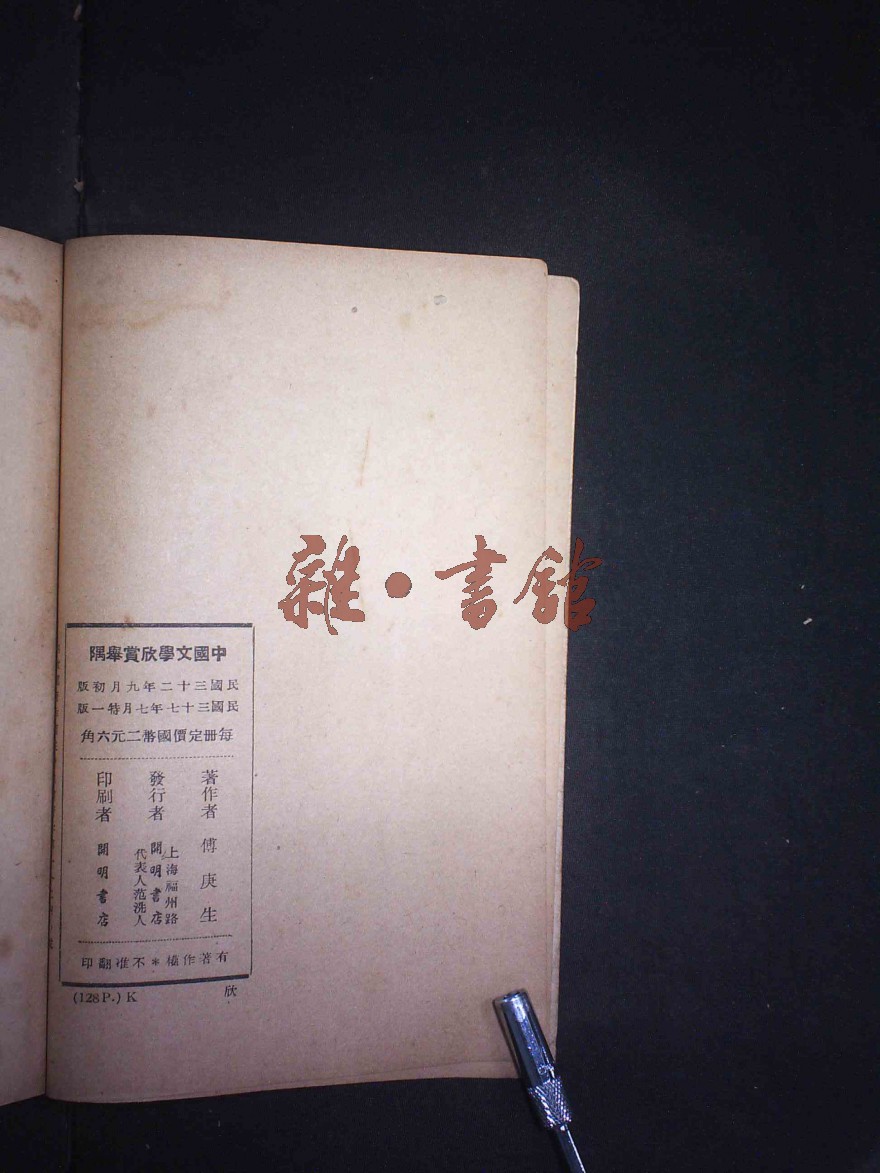 雜·書館
中國文學欣賞舉隅
民國三十二年九月初版
民國三十七年七月特一版
每册定價國幣二元六角
著作者 傅庚生
發行者 上海福州路 開明書店 代表人范洗人
印刷者 開明書店
有著作權*不准翻印
(128P.) K 欣